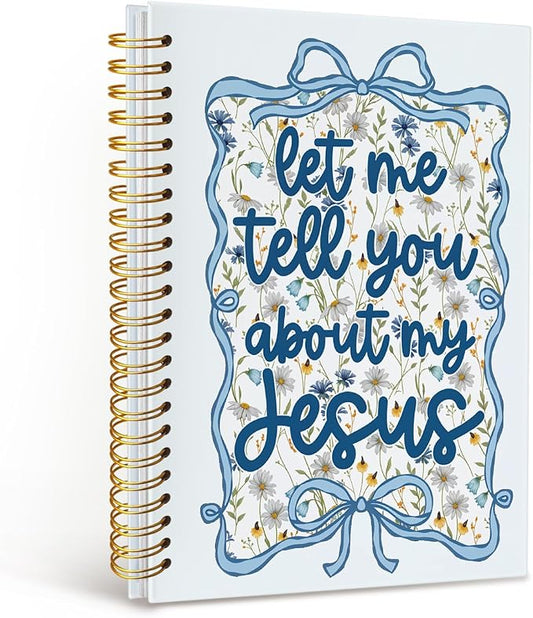 let me
tell you
about my
Jesus